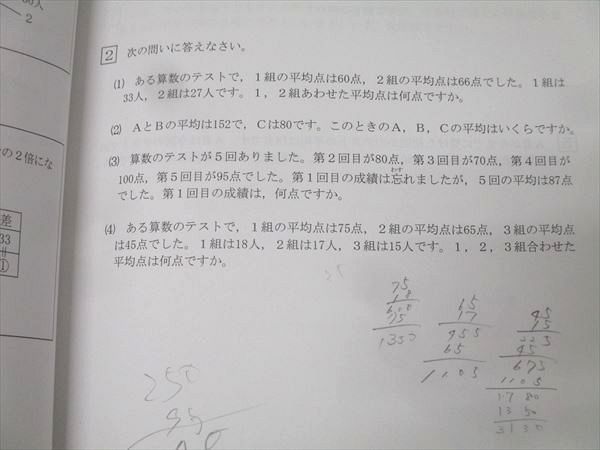 人
2
2 次の問いに答えなさい。
(1) ある算数のテストで，1組の平均点は60点，2組の平均点は66点でした。1組は
33人，2組は27人です。1，2組あわせた平均点は何点ですか。
(2) AとBの平均は152で，Cは80です。このときのA，B，Cの平均はいくらですか。
の2倍にな
(3) 算数のテストが5回ありました。第2回目が80点，第3回目が70点，第4回目が
わす
100点，第5回目が95点でした。第1回目の成績は忘れましたが，5回の平均は87点
でした。第1回目の成績は，何点ですか。
差
33
①
(4) ある算数のテストで，1組の平均点は75点，2組の平均点は65点，3組の平均点
は45点でした。1組は18人，2組は17人，3組は15人です。1，2，3組合わせた
平均点は何点ですか。
75
18
600
75
1350
65
17
455
65
1105
45
15
225
45
675
1105
1780
1350
3130
250